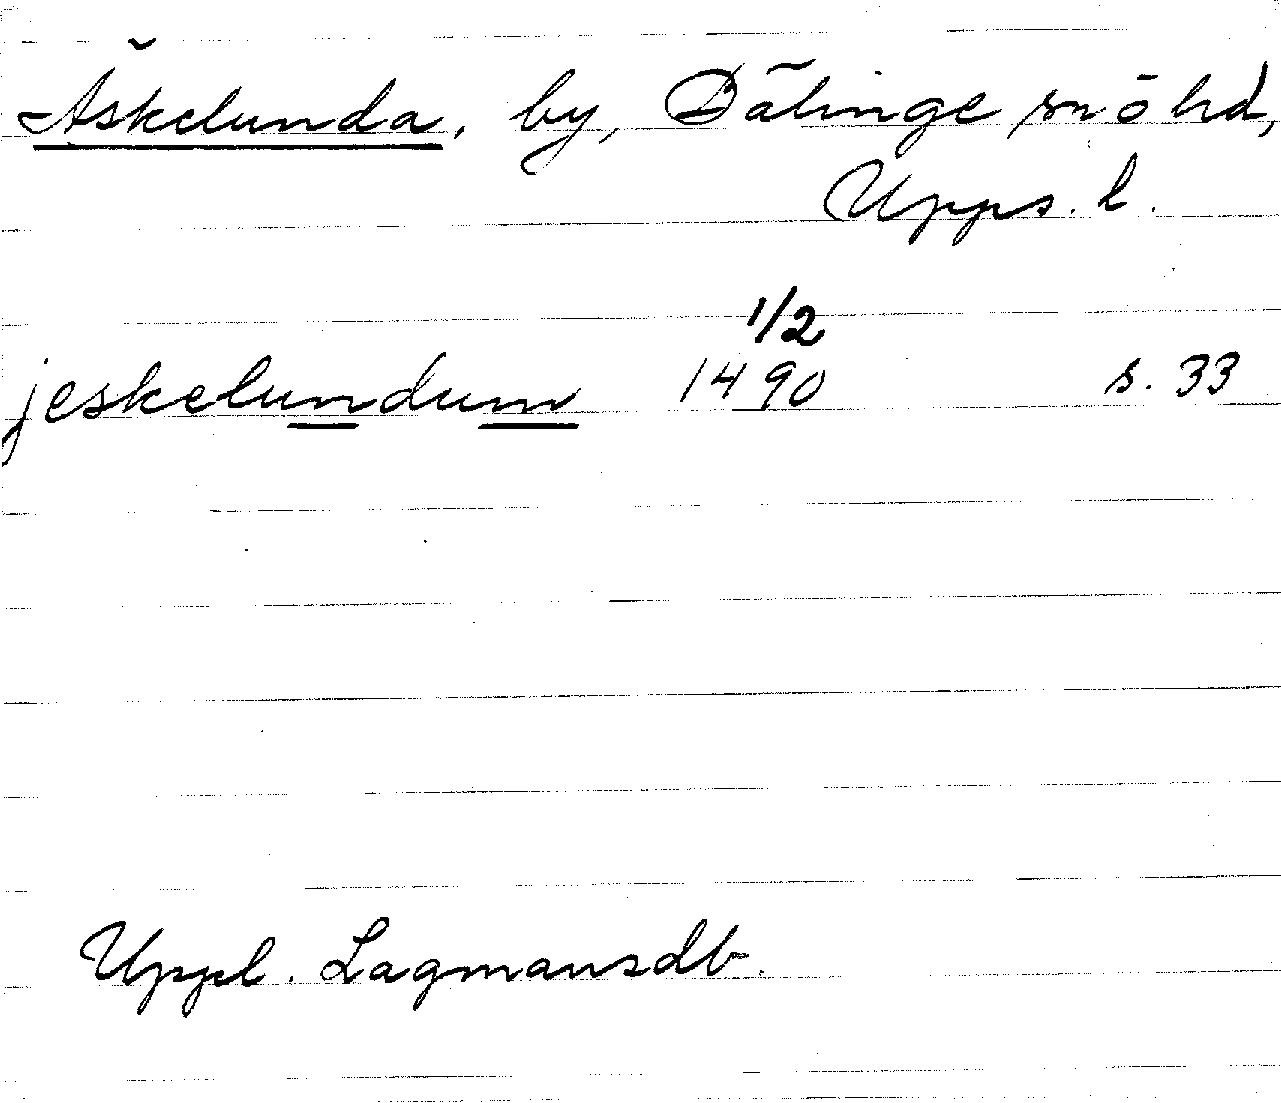 Äskelunda, by, Bälinge sn ö hd,
Upps. l.
1/2
jeskelundum 1490 s. 33
Uppl. Lagmansdb.